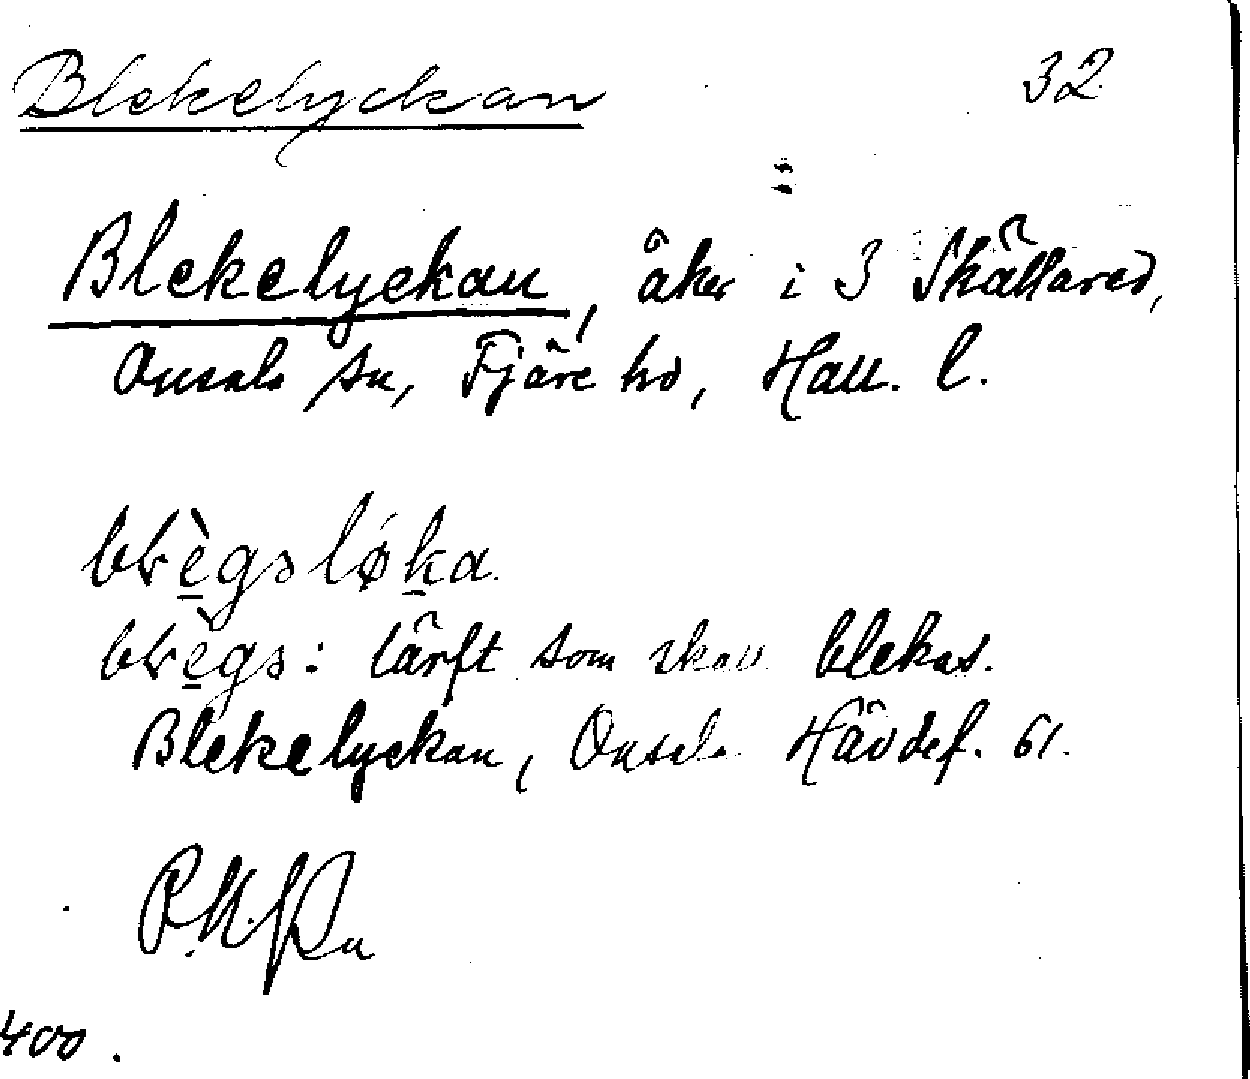 Blekelyckan 32
Blekelyckan, åker i 3 Skällared,
Onsala sn, Fjäre hd, Hall. l.
blègsløka
blègs: lärft som skall blekas.
Blekelyckan, Onsala Hävdef. 61.
400.